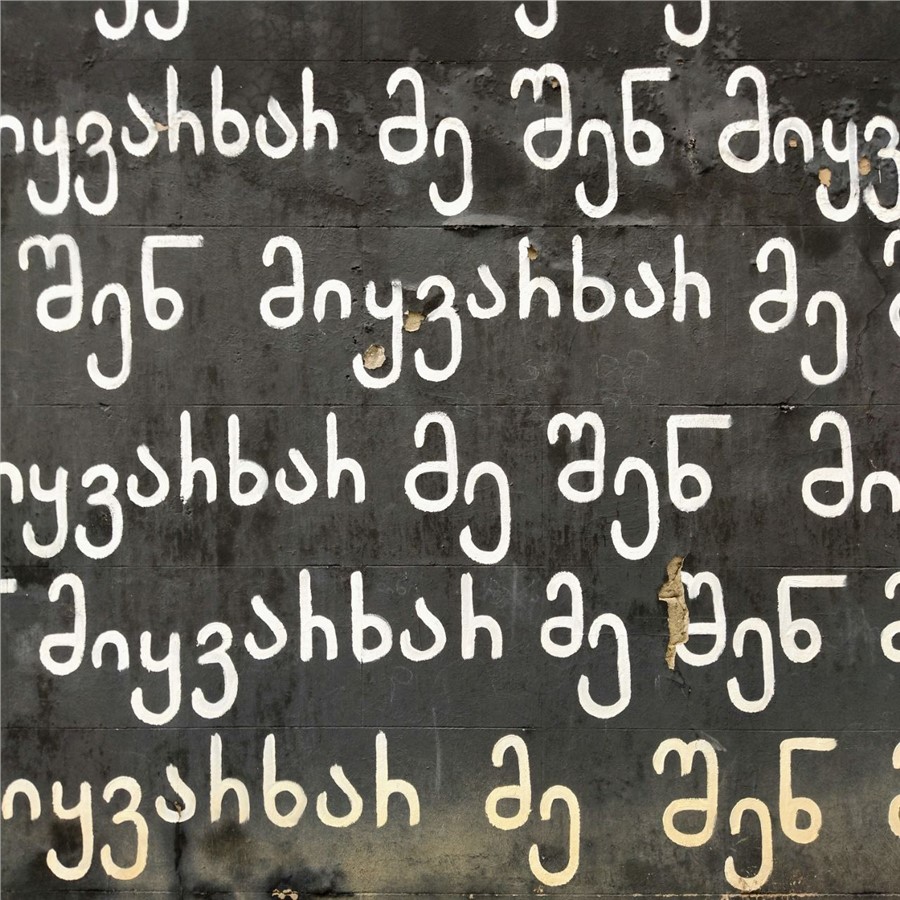 იყვარხარ მე შენ მიყვ
შენ მიყვარხარ მე
იყვარხარ მე შენ მი
მიყვარხარ მე შენ
იყვარხარ მე შენ